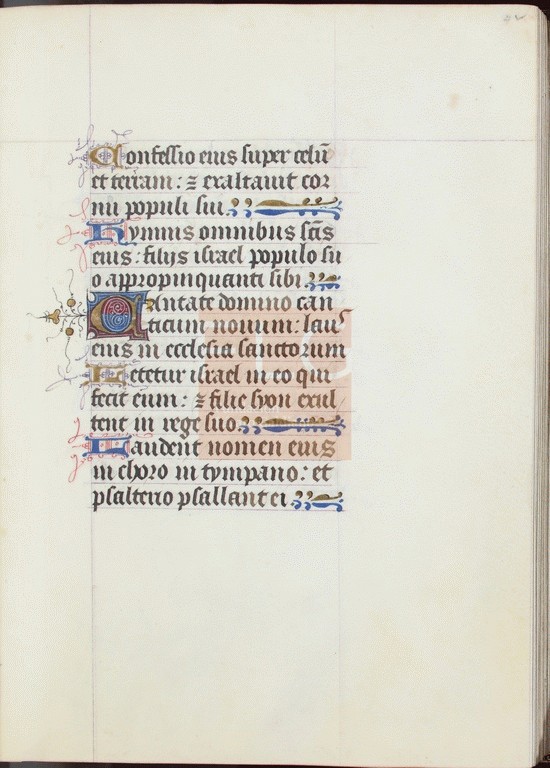 Confessio eius super celū
et terram: ⁊ exaltauit cor
nu populi sui.
Hymnus omnibus sc̄is
eius: filijs israel populo su
o appropinquanti sibi.
Cantate domino can
ticum nouum: laus
eius in ecclesia sanctorum
Letetur israel in eo qui
fecit eum: ⁊ filie syon exul
tent in rege suo.
Laudent nomen eius
in choro in tympano: et
psalterio psallant ei.